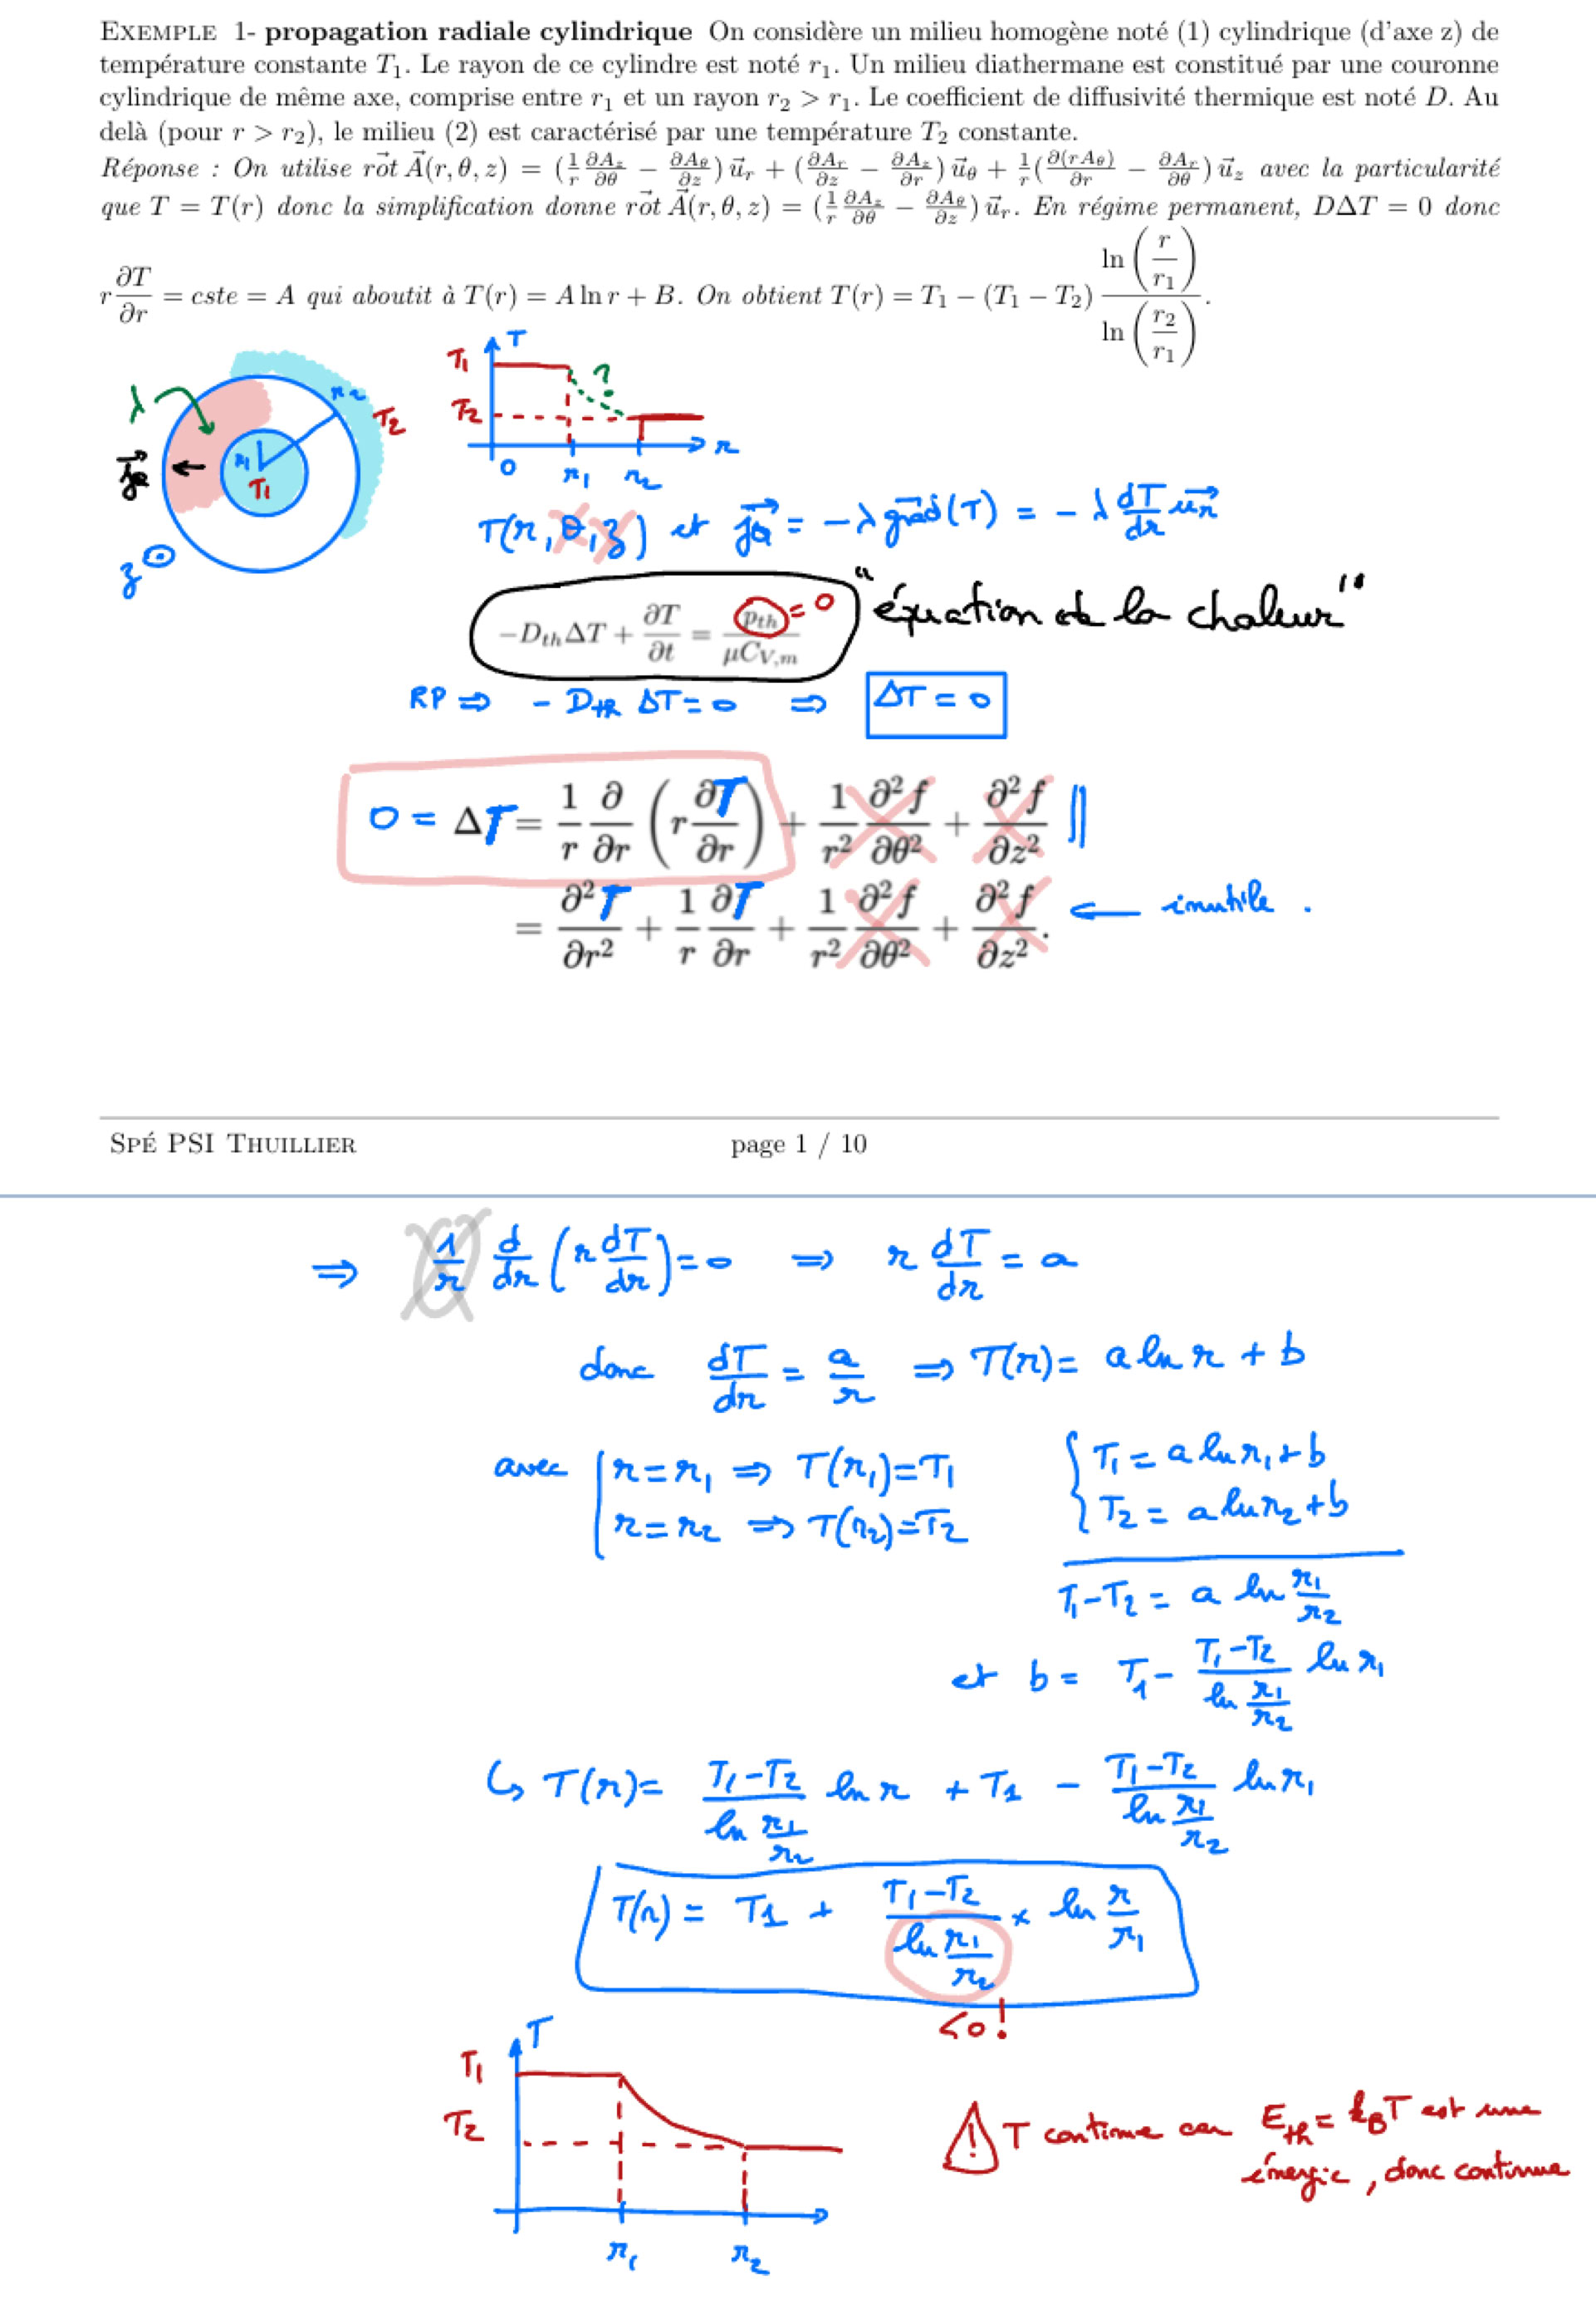 EXEMPLE 1- propagation radiale cylindrique On considère un milieu homogène noté (1) cylindrique (d'axe z) de
température constante T₁. Le rayon de ce cylindre est noté r₁. Un milieu diathermane est constitué par une couronne
cylindrique de même axe, comprise entre r₁ et un rayon r₂ > r₁. Le coefficient de diffusivité thermique est noté D. Au
delà (pour r > r₂), le milieu (2) est caractérisé par une température T₂ constante.
Réponse : On utilise rot A(r, θ, z) = (1/r ∂A_z/∂θ − ∂A_θ/∂z) u_r + (∂A_r/∂z − ∂A_z/∂r) u_θ + 1/r(∂(rA_θ)/∂r − ∂A_r/∂θ) u_z avec la particularité
que T = T(r) donc la simplification donne rot A(r, θ, z) = (1/r ∂A_z/∂θ − ∂A_θ/∂z) u_r. En régime permanent, DΔT = 0 donc
r ∂T/∂r = cste = A qui aboutit à T(r) = A ln r + B. On obtient T(r) = T₁ − (T₁ − T₂) ln(r/r₁) / ln(r₂/r₁).
λ r₂ T₂ r₁ T₁ j_Q z
T T₁ ? T₂ 0 r₁ r₂ r
T(r, θ, z) et j_Q = −λ grad(T) = −λ dT/dr u_r
−D_th ΔT + ∂T/∂t = p_th/(μC_V,m) = 0 "équation de la chaleur"
RP ⇒ − D_th ΔT = 0 ⇒ ΔT = 0
0 = ΔT = 1/r ∂/∂r (r ∂T/∂r) + 1/r² ∂²f/∂θ² + ∂²f/∂z²
= ∂²T/∂r² + 1/r ∂T/∂r + 1/r² ∂²f/∂θ² + ∂²f/∂z². ← inutile.
SPÉ PSI THUILLIER page 1 / 10
⇒ 1/r d/dr (r dT/dr) = 0 ⇒ r dT/dr = a
donc dT/dr = a/r ⇒ T(r) = a ln r + b
avec { r = r₁ ⇒ T(r₁) = T₁ { T₁ = a ln r₁ + b
r = r₂ ⇒ T(r₂) = T₂ T₂ = a ln r₂ + b
T₁ − T₂ = a ln r₁/r₂
et b = T₁ − (T₁ − T₂)/(ln r₁/r₂) ln r₁
↳ T(r) = (T₁ − T₂)/(ln r₁/r₂) ln r + T₁ − (T₁ − T₂)/(ln r₁/r₂) ln r₁
T(r) = T₁ + (T₁ − T₂)/(ln r₁/r₂) × ln r/r₁
<0!
T T₁ T₂ r₁ r₂
⚠ T continue car E_th = k_B T est une
énergie, donc continue